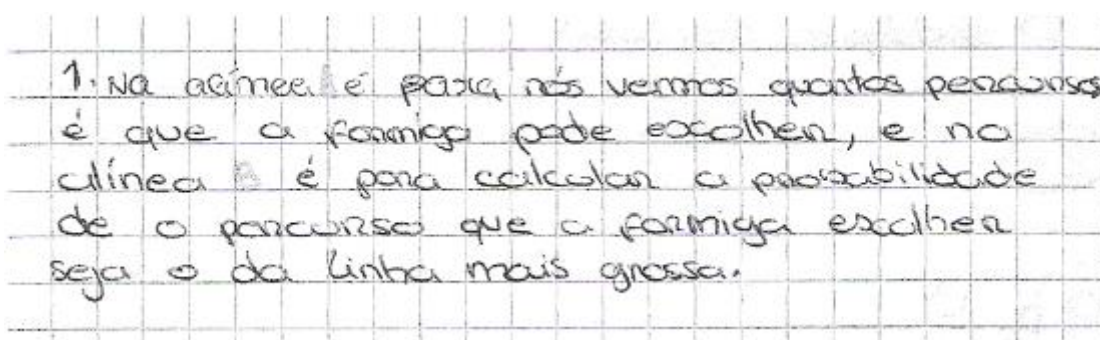 1. Na alínea A é para nós vermos quantos percursos
é que a formiga pode escolher, e na
alínea B é para calcular a probabilidade
de o percurso que a formiga escolher
seja o da linha mais grossa.